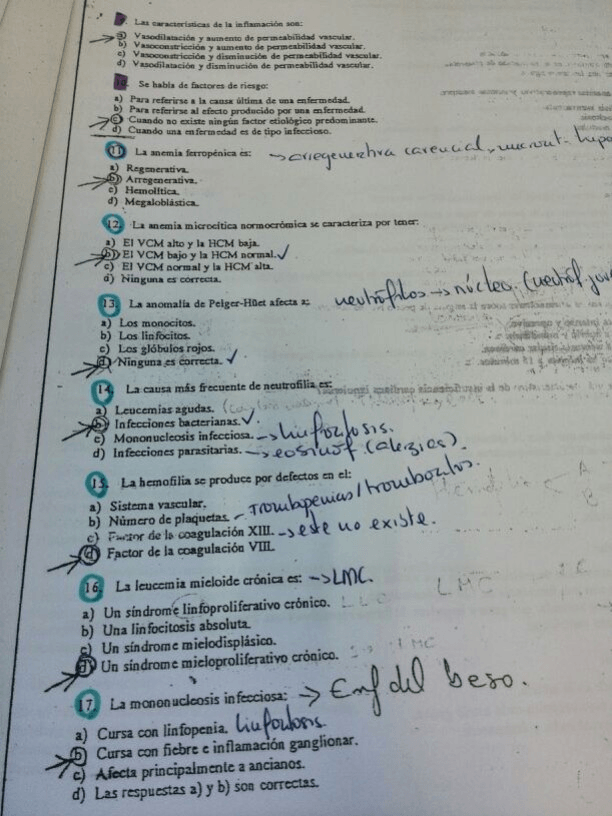 9. Las características de la inflamación son:
a) Vasodilatación y aumento de permeabilidad vascular.
b) Vasoconstricción y aumento de permeabilidad vascular.
c) Vasoconstricción y disminución de permeabilidad vascular.
d) Vasodilatación y disminución de permeabilidad vascular.
10. Se habla de factores de riesgo:
a) Para referirse a la causa última de una enfermedad.
b) Para referirse al efecto producido por una enfermedad.
c) Cuando no existe ningún factor etiológico predominante.
d) Cuando una enfermedad es de tipo infeccioso.
11. La anemia ferropénica es: → arregenerativa carencial,
a) Regenerativa.
b) Arregenerativa.
c) Hemolítica.
d) Megaloblástica.
12. La anemia microcítica normocrómica se caracteriza por tener:
a) El VCM alto y la HCM baja.
b) El VCM bajo y la HCM normal. ✓
c) El VCM normal y la HCM alta.
d) Ninguna es correcta.
13. La anomalía de Pelger-Hüet afecta a: neutrófilos → núcleo. (neutrof.
a) Los monocitos.
b) Los linfocitos.
c) Los glóbulos rojos.
d) Ninguna es correcta. ✓
14. La causa más frecuente de neutrofilia es:
a) Leucemias agudas.
b) Infecciones bacterianas. ✓
c) Mononucleosis infecciosa. → linfocitosis.
d) Infecciones parasitarias. → eosinof (alergias).
15. La hemofilia se produce por defectos en el:
a) Sistema vascular.
b) Número de plaquetas. - trombopenias/trombocitos.
c) Factor de la coagulación XIII. → este no existe.
d) Factor de la coagulación VIII.
16. La leucemia mieloide crónica es: → LMC. LMC
a) Un síndrome linfoproliferativo crónico. LLC
b) Una linfocitosis absoluta.
c) Un síndrome mielodisplásico.
d) Un síndrome mieloproliferativo crónico. LMC
17. La mononucleosis infecciosa: → Enf del beso.
a) Cursa con linfopenia. linfocitosis
b) Cursa con fiebre e inflamación ganglionar.
c) Afecta principalmente a ancianos.
d) Las respuestas a) y b) son correctas.